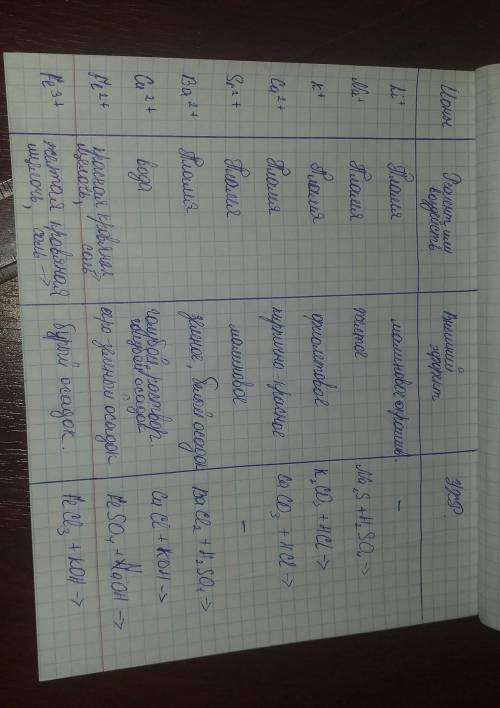 Ионы Реагент или воздейств Внешний эффект УХР.
Li⁺ Пламя малиновое окрашив. –
Na⁺ Пламя желтое Na₂S + H₂SO₄ →
K⁺ Пламя фиолетовое K₂CO₃ + HCl →
Ca²⁺ Пламя кирпично-красное CaCO₃ + HCl →
Sr²⁺ Пламя малиновое –
Ba²⁺ Пламя зеленое, белый осадок BaCl₂ + H₂SO₄ →
Cu²⁺ вода голубой раствор голубой осадок CuCl + KOH →
Fe²⁺ красная кровяная соль щелочь, серо зеленый осадок FeSO₄ + NaOH →
Fe³⁺ желтая кровяная соль → щелочь, бурый осадок. FeCl₃ + KOH →